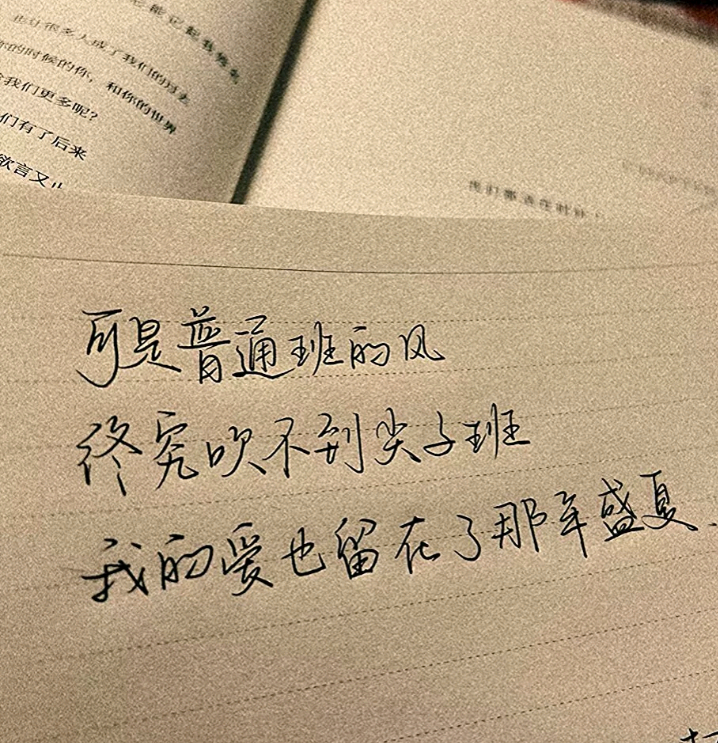 也让很多人成了我们的过去
你的时候的你，和你的世界
我们更多呢？
们有了后来
欲言又止
可是普通班的风
终究吹不到尖子班
我的爱也留在了那年盛夏.